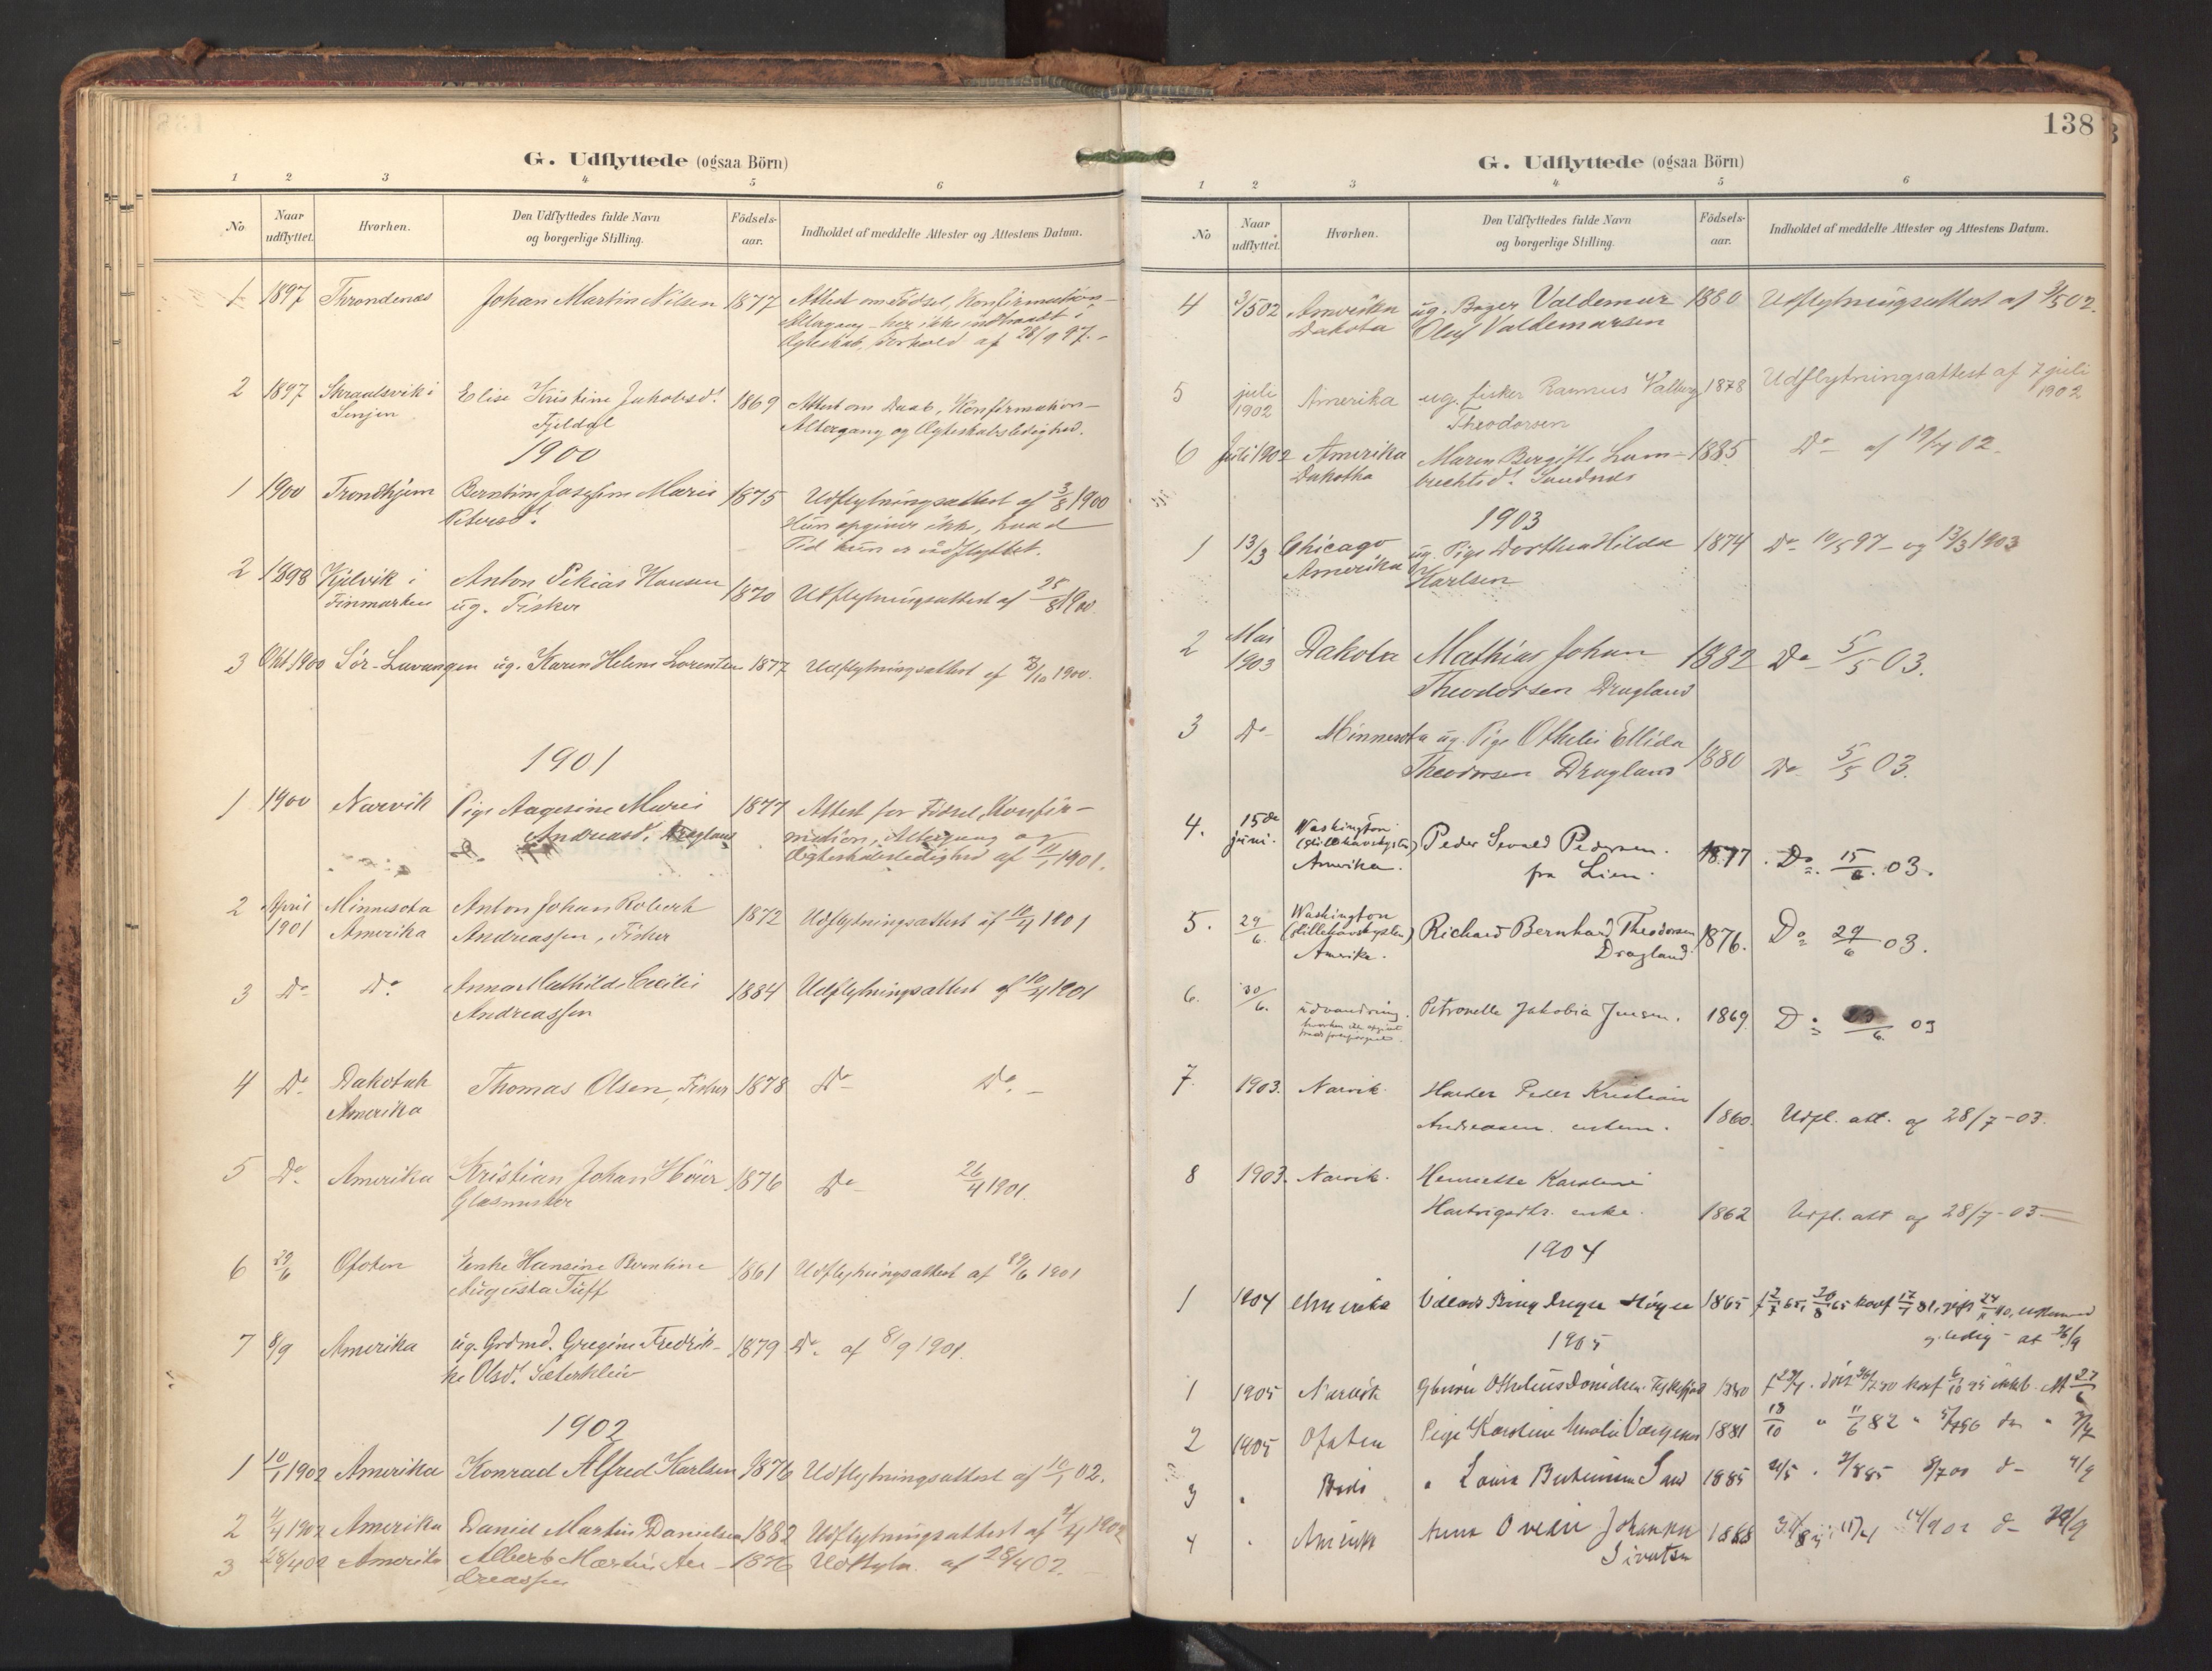 G. Udflyttede (ogsaa Börn)
1 2 3 4 5 6
No Naar udflyttet. Hvorhen. Den Udflyttedes fulde Navn og borgerlige Stilling. Födsels-aar. Indholdet af meddelte Attester og Attestens Datum.
1 1897 Throndenæs Johan Martin Nilsen 1877 Attest om Födsel, Konfirmation-
Altergang - her ikke indtraadt i
Ægteskab, forhold af 28/9 97.-
2 1897 Senjen Elise Kristine Jakobsd. 1869 Attest om Daab, Konfirmation-
Fjeldal Altergang og Ægteskabsledighed.
1900
1 1900 Trondhjem Berntine Josefine Marie 1875 Udflytningsattest af 3/8 1900
Petersd. Hun opgiver ikke, hvad
Tid hun er udflyttet.
2 1898 Kjelvik i Anton Hansen 1870 Udflytningsattest af 25/8 1900.
Finmarken ug. Fisker
3 Okt 1900 Sör-Lavangen ug. Karen Helene Lorentsen 1877 Udflytningsattest af /10 1900.
1901
1 1900 Narvik Pige Aagesine Marie 1877 Attest for Födsel, Konfir-
Andreasd. Dragland mation, Altergang og
Ægteskabsledighed af 11/1 1901.
2 April Minnesota Anton Johan Robert 1872 Udflytningsattest af 10/4 1901
1901 Amerika Andreassen, Fisker
3 Do Do Anna Mathilde Cecilie 1884 Udflytningsattest af 10/4 1901
Andreassen
4 Do Dakotah Thomas Olsen, Fisker 1878 Do Do -
Amerika
5 Do Amerika Kristian Johan Höier 1876 Do 26/4 1901.
Glasmester
6 29/6 Ofoten Enke Hansine Berntine 1861 Udflytningsattest af 29/6 1901
Augusta Tuff
7 8/9 Amerika ug. Grdmd. Gregine Fredrik- 1879 Do af 8/9 1901.
ke Olsd. Sæterklein
1902
1 10/1 1902 Amerika Konrad Alfred Karlsen 1876 Udflytningsattest af 10/1 02.
2 4/4 1902 Amerika Daniel Martin Danielsen 1882 Udflytningsattest af 4/4 1902
3 28/4 02 Amerika Albert Martin An- 1876 af 28/4 02.
dreassen
138
G. Udflyttede (ogsaa Börn)
1 2 3 4 5 6
No Naar udflyttet. Hvorhen. Den Udflyttedes fulde Navn og borgerlige Stilling. Födsels-aar. Indholdet af meddelte Attester og Attestens Datum.
4 3/5 02 Amerika ug. Bager Valdemar 1880 Udflytningsattest af 3/5 02.
Dakota Oluf Valdemarsen
5 juli 1902 Amerika ug. fisker Rasmus Valberg 1878 Udflytningsattest af 7 juli
Theodorsen 1902
6 Juli 1902 Amerika Maren Bergitte Lam- 1885 Do af 19/7 02.
Dakotha brechtsd. Sandnes
1903
1 13/3 Chicago ug. Pige Dorthea Hilda 1874 Do 10/5 97 - og 13/3 1903
Amerika Karlsen
2 Mai 1903 Dakota Mathias Johan 1882 Do 5/5 03.
Theodorsen Dragland
3 Do Minnesota ug. Pige Othelie Ellida 1880 Do 5/5 03.
Theodorsen Dragland
4. 15de juni. Washington (Stillehavskysten) Peder Sevald Pedersen. 1877. Do. 15/6. 03.
Amerika. fra Lien.
5. 29/6. Washington (Stillehavskysten) Richard Bernhard Theodorsen 1876. Do 29/6 03.
Amerika. Dragland.
6. 30/6. udvandring. Petronelle Jakobia Jensen. 1869. Do 23/6. 03
7. 1903. Narvik. Peder Kristian
Andreasen. 1860. Udfl. att. af 28/7-03.
8 1903. Narvik. Henriette Karoline
Hartvigsdtr. enke. 1862 Udfl. att af 28/7-03
1904
1 1904 Amerika 1865
1905
1 1905 Narvik 1880
2 1905 Ofoten Pige Karoline 1881 11/6 82
3 " Bodö " 1885
4 " Amerik Anna Johanna 1888
Sivertsen